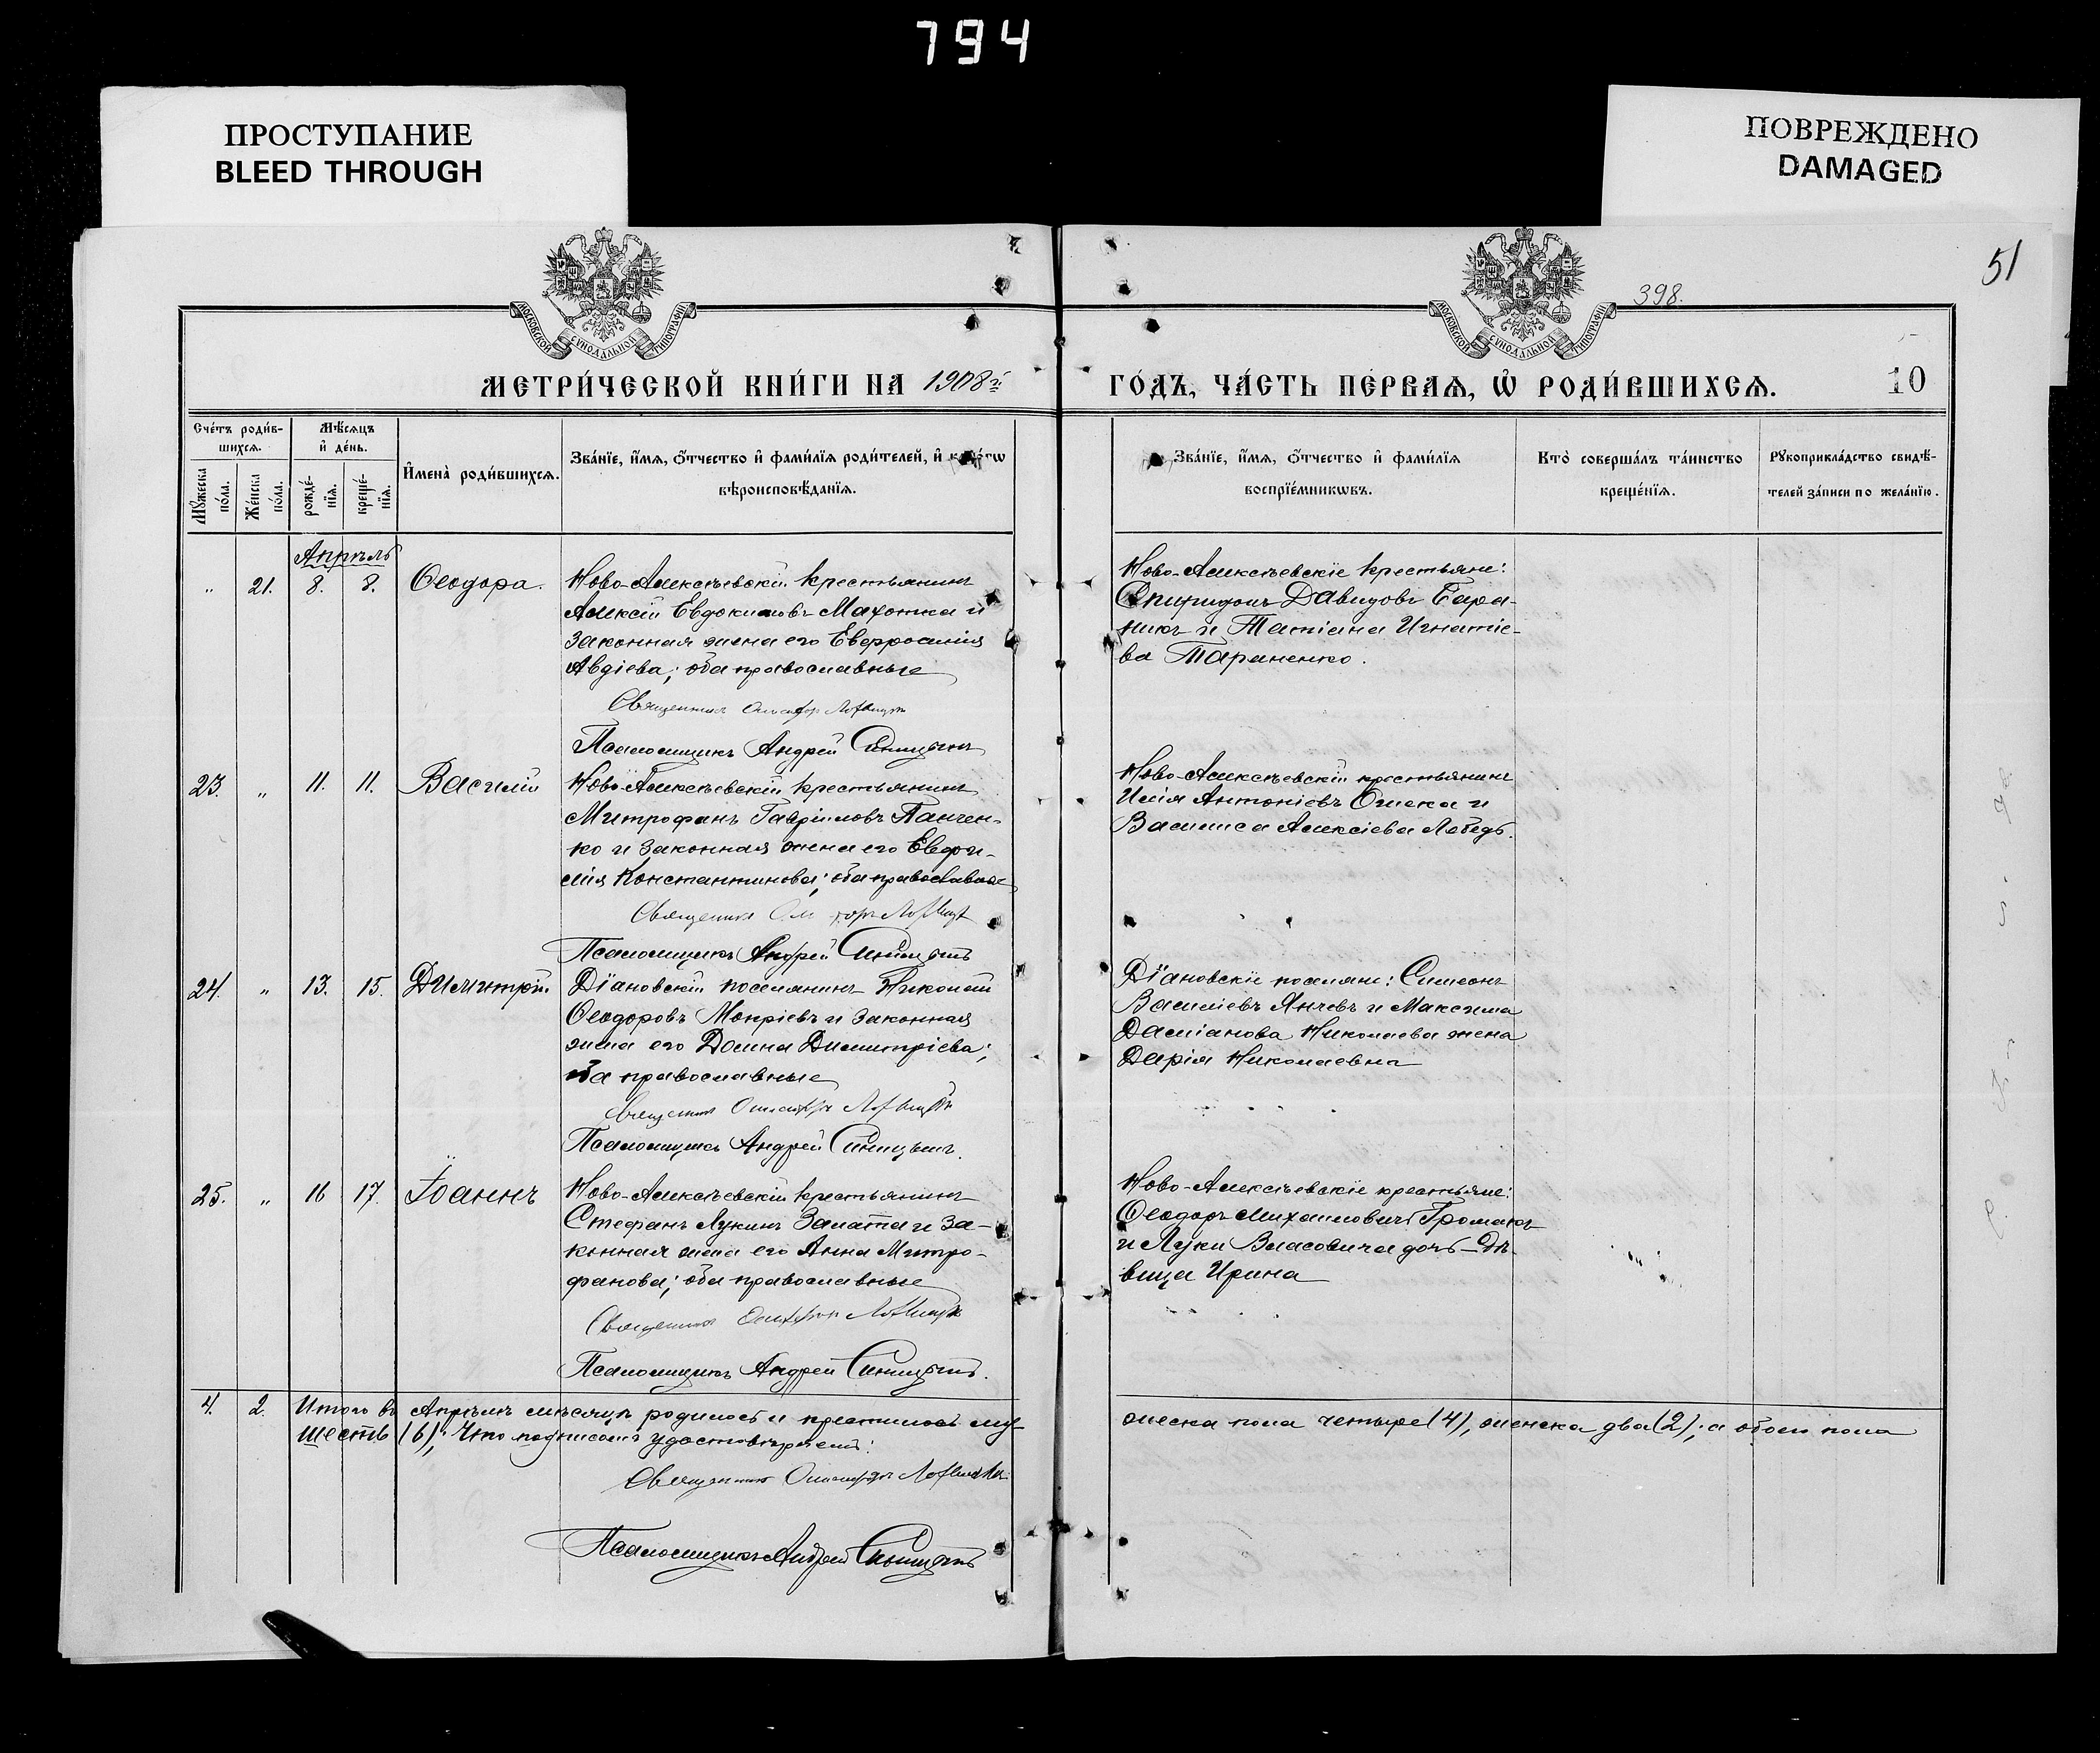 794
ПРОСТУПАНИЕ
BLEED THROUGH
ПОВРЕЖДЕНО
DAMAGED
51
398.
МОСКОВСКОЙ СѴНОДАЛЬНОЙ ТИПОГРАФІИ
МОСКОВСКОЙ СѴНОДАЛЬНОЙ ТИПОГРАФІИ
МЕТРИ́ЧЕСКОЙ КНИ́ГИ НА 1908й
ГО́ДЪ, ЧА́СТЬ ПЕ́РВАѦ, Ѡ҆ РОДИ́ВШИХСѦ.
10
Сче́тъ роди́в-
шихсѧ.
Мѣ́сѧцъ
и҆ де́нь.
Мꙋ́жеска по́ла.
Же́нска по́ла.
рожде́-
нїѧ.
креще́-
нїѧ.
И҆мена̀ роди́вшихсѧ.
Зва́нїе, и҆́мѧ, ѻ҆́тчество и҆ фами́лїѧ роди́телей, и҆
вѣроисповѣ́данїѧ.
Зва́нїе, и҆́мѧ, ѻ҆́тчество и҆ фами́лїѧ
воспрїе́мникѡвъ.
Кто̀ соверша́лъ та́инство
креще́нїѧ.
Рꙋкоприкла́дство свидѣ́-
телей за́писи по жела́нїю.
Апрѣль
" 21. 8. 8. Ѳеодора.
Ново-Алексѣевскій крестьянинъ
Алексій Евдокимовъ Махотка и
законная жена его Евфросинія
Авдіева; оба православные
Священникъ
Псаломщикъ Андрей Синицынъ
Ново-Алексѣевскіе крестьяне:
Спиридонъ Давидовъ Бара-
никъ и Татіана Игнатіе-
ва Тараненко.
23. " 11. 11. Василій
Ново-Алексѣевскій крестьянинъ
Митрофанъ Гавріиловъ Панчен-
ко и законная жена его Евфи-
мія Константинова; оба православные
Священникъ
Псаломщикъ Андрей Синицынъ
Ново-Алексѣевскій крестьянинъ
Илія Антоніевъ и
Василиса Алексіева Лебедь.
24. " 13. 15. Димитрій
Діановскій поселянинъ Николай
Ѳеодоровъ Мокріевъ и законная
жена его Домна Димитріева;
оба православные
Священникъ
Псаломщикъ Андрей Синицынъ.
Діановскіе поселяне: Симеонъ
Василіевъ Янчевъ и Максима
Даміанова Николаева жена
Дарія Николаевна
25. " 16 17. Іоаннъ
Ново-Алексѣевскій крестьянинъ
Стефанъ Лукинъ Залата и за-
конная жена его Анна Митро-
фанова; оба православные
Священникъ
Псаломщикъ Андрей Синицынъ.
Ново-Алексѣевскіе крестьяне:
Ѳеодоръ Михаиловичъ Громакъ
и Луки Власовича дочь-дѣ-
вица Ирина
4. 2. Итого въ Апрѣлѣ мѣсяцѣ родилось и крестилось му-
жеска пола четыре (4), женска два (2); а обоего пола
шесть (6); Что подписомъ удостовѣряемъ:
Священникъ
Псаломщикъ Андрей Синицынъ